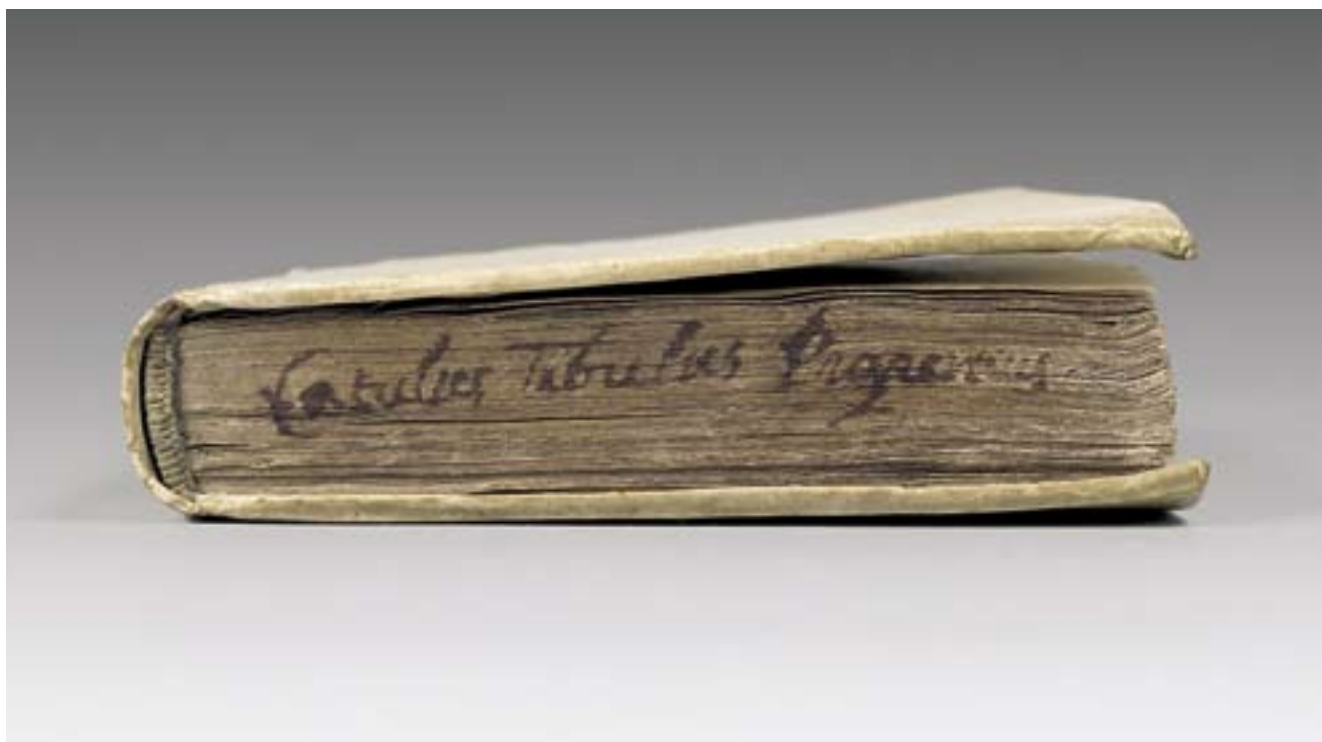 Catulus Tibulus Propertius